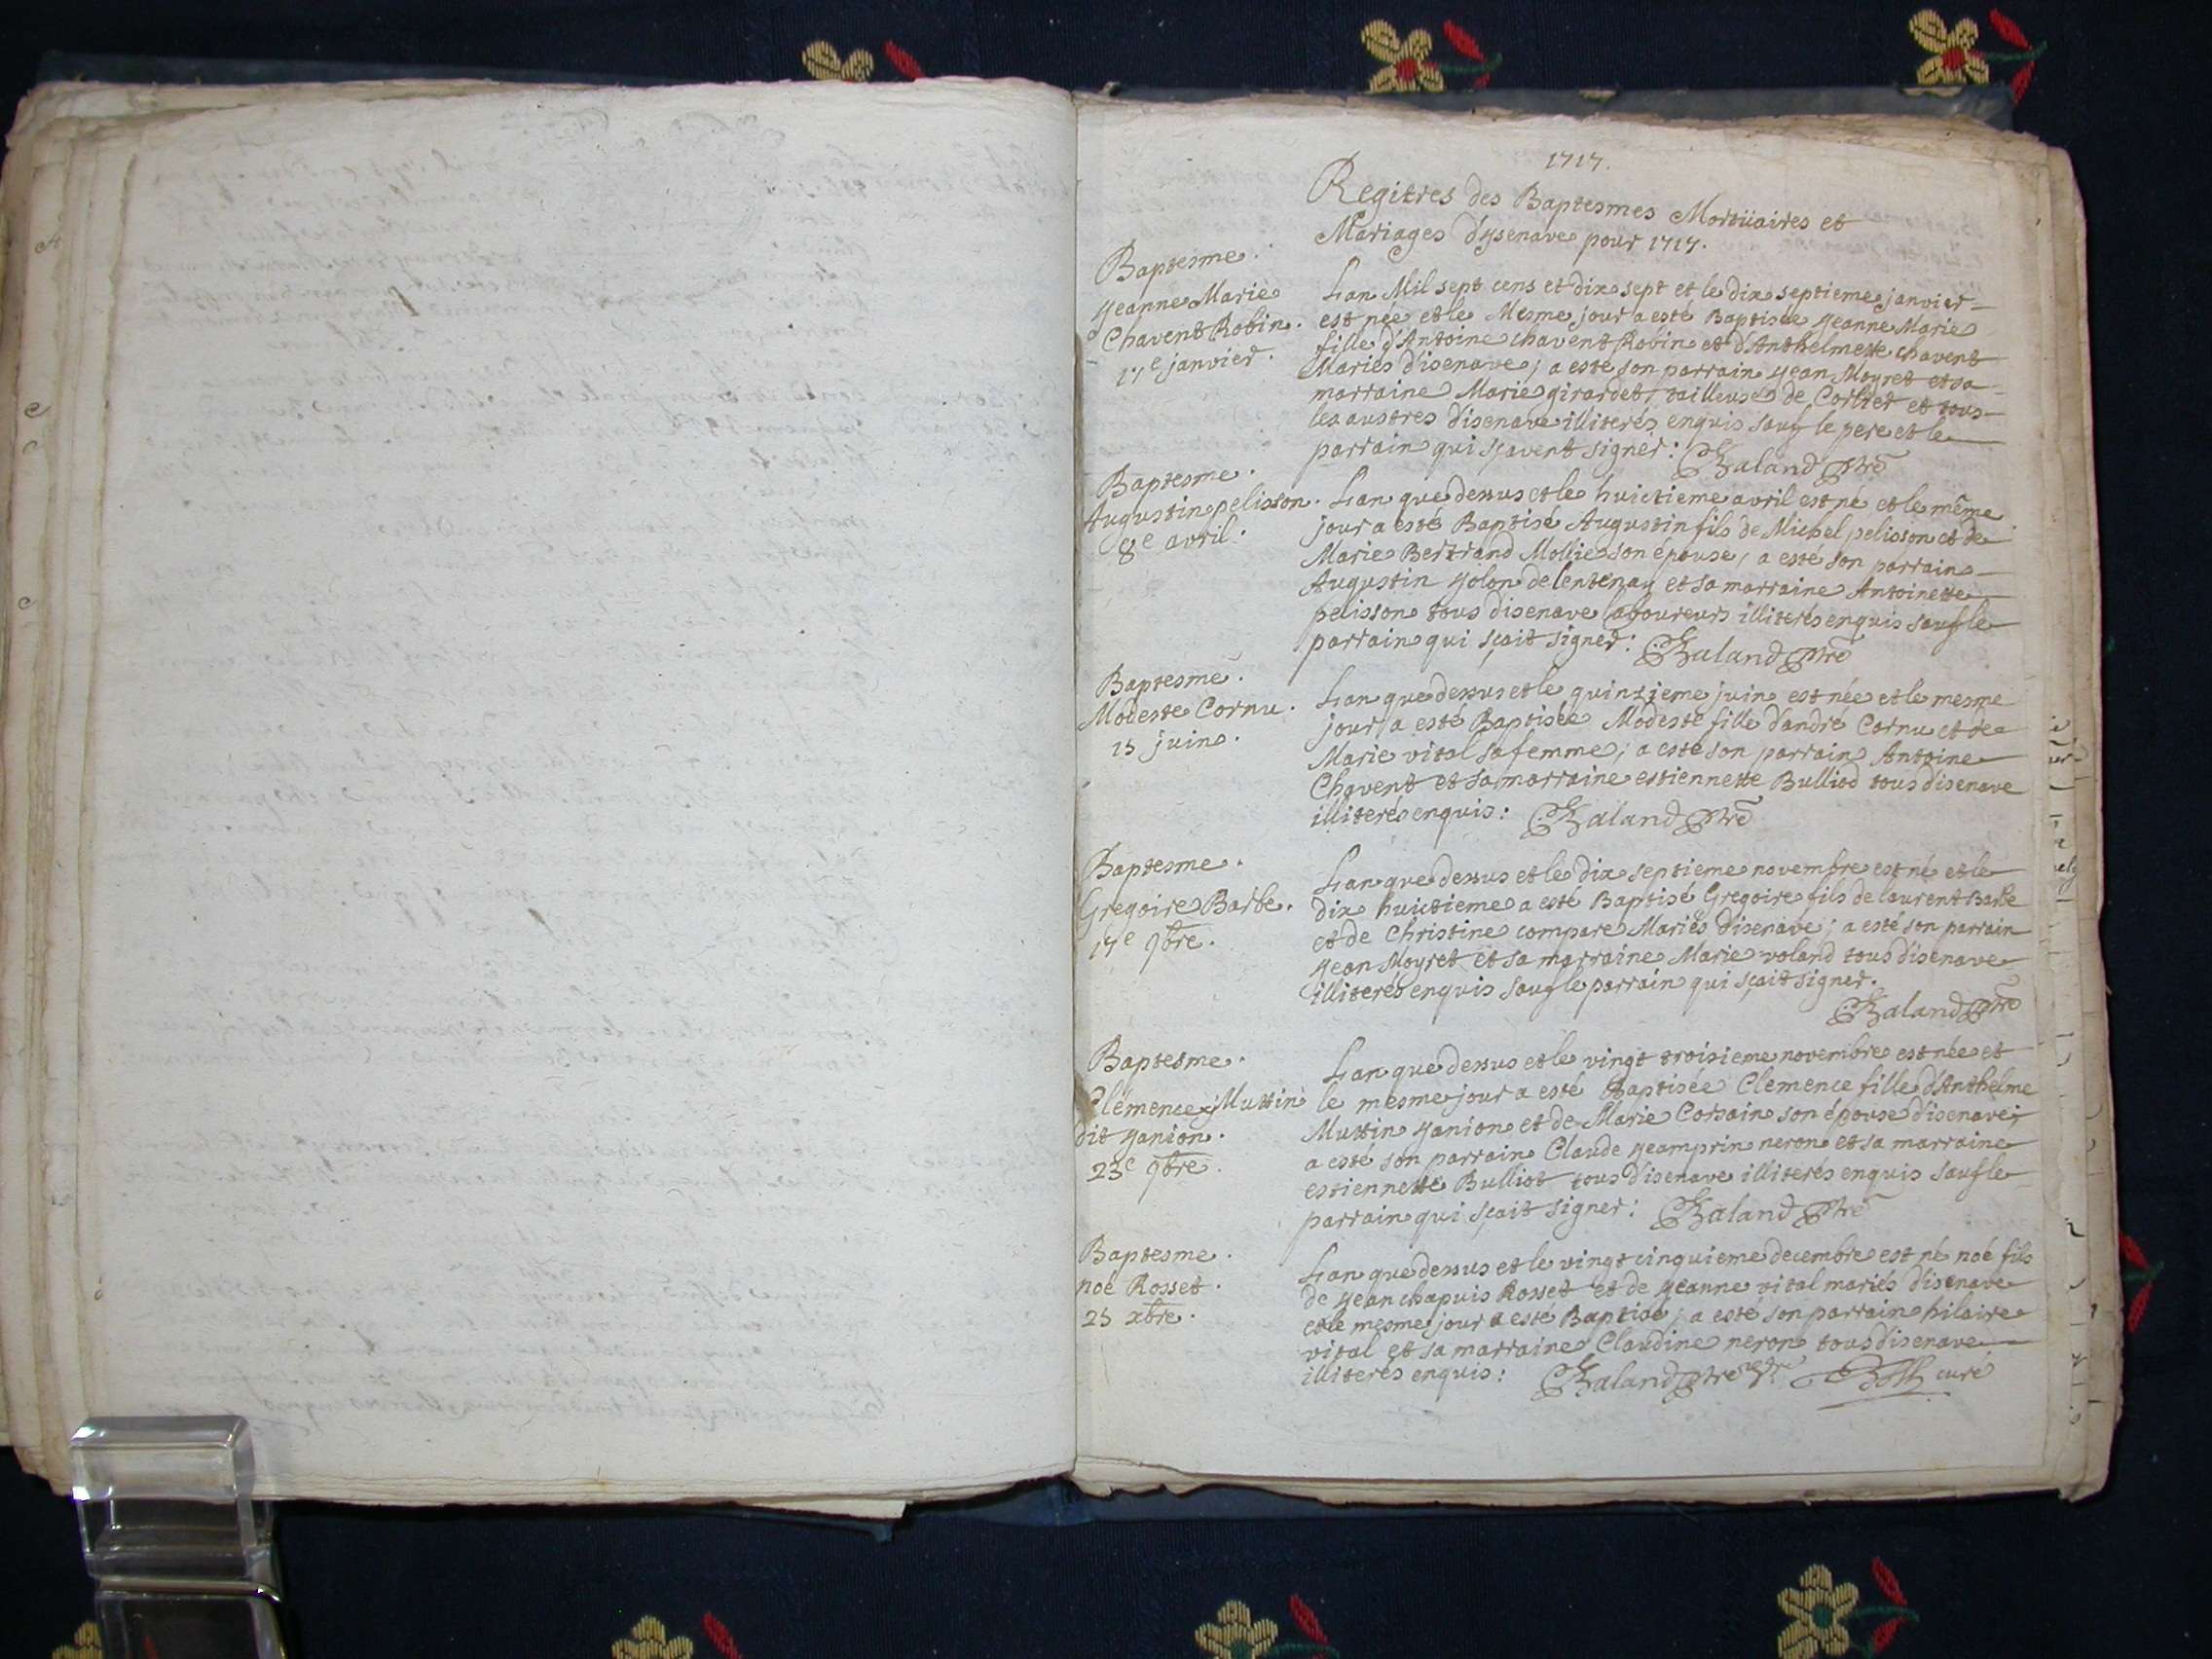 1717.
Regitres des Baptesmes Mortüaires et
Mariages d'ysenave pour 1717.
Baptesme.
Jeanne Marie
Chavent Robin.
17e janvier.
Lan Mil sept cens et dix sept et le dix septieme janvier
est née et le Mesme jour a esté Baptisée Jeanne Marie
fille d'Antoine chavent Robin et d'Anthelmette chavent
Mariés d'isenave; a esté son parrain Jean Moyret et sa
marraine Marie girardet, tailleuse de Corlier et tous
les austres disenave illiterés enquis sauf le pere et le
parrain qui sçavent signer: Galand Ptre
Baptesme.
Augustin pelisson.
8e avril.
Lan que dessus et le huictieme avril est né et le même
jour a esté Baptisé Augustin fils de Michel pelisson et de
Marie Bertrand Mollie son épouse, a esté son parrain
Augustin Jolon de lentenay et sa marraine Antoinette
pelisson tous disenave laboureurs illiterés enquis sauf le
parrain qui sçait signer: Galand Ptre
Baptesme.
Modeste Cornu.
15 juin.
Lan que dessus et le quinzieme juin est née et le mesme
jour a esté Baptisée Modeste fille d'andré Cornu et de
Marie vital sa femme; a esté son parrain Antoine
Chavent et sa marraine estiennette Bulliod tous disenave
illiterés enquis: Galand Ptre
Baptesme.
Gregoire Barbe.
17e 9bre.
Lan que dessus et le dix septieme novembre est né et le
dix huictieme a esté Baptisé Gregoire fils de laurent Barbe
et de Christine compare Mariés disenave; a esté son parrain
Jean Moyret et sa marraine Marie voland tous disenave
illiterés enquis sauf le parrain qui sçait signer.
Galand Ptre
Baptesme.
Clémence Muttin
dit Janion.
23e 9bre.
Lan que dessus et le vingt troisieme novembre est née et
le mesme jour a esté Baptisée Clemence fille d'Anthelme
Muttin Janion et de Marie Corsain son épouse d'isenave;
a esté son parrain Claude Jeamprin neron et sa marraine
estiennette Bulliot tous disenave illiterés enquis sauf le
parrain qui sçait signer: Galand Ptre
Baptesme.
noé Rosset.
25 xbre.
Lan que dessus et le vingt cinquieme decembre est né noé fils
de Jean chapuis Rosset et de Jeanne vital mariés disenave
et le mesme jour a esté Baptisé; a esté son parrain hilaire
vital et sa marraine Claudine neron tous disenave
illiterés enquis: Galand Ptre curé